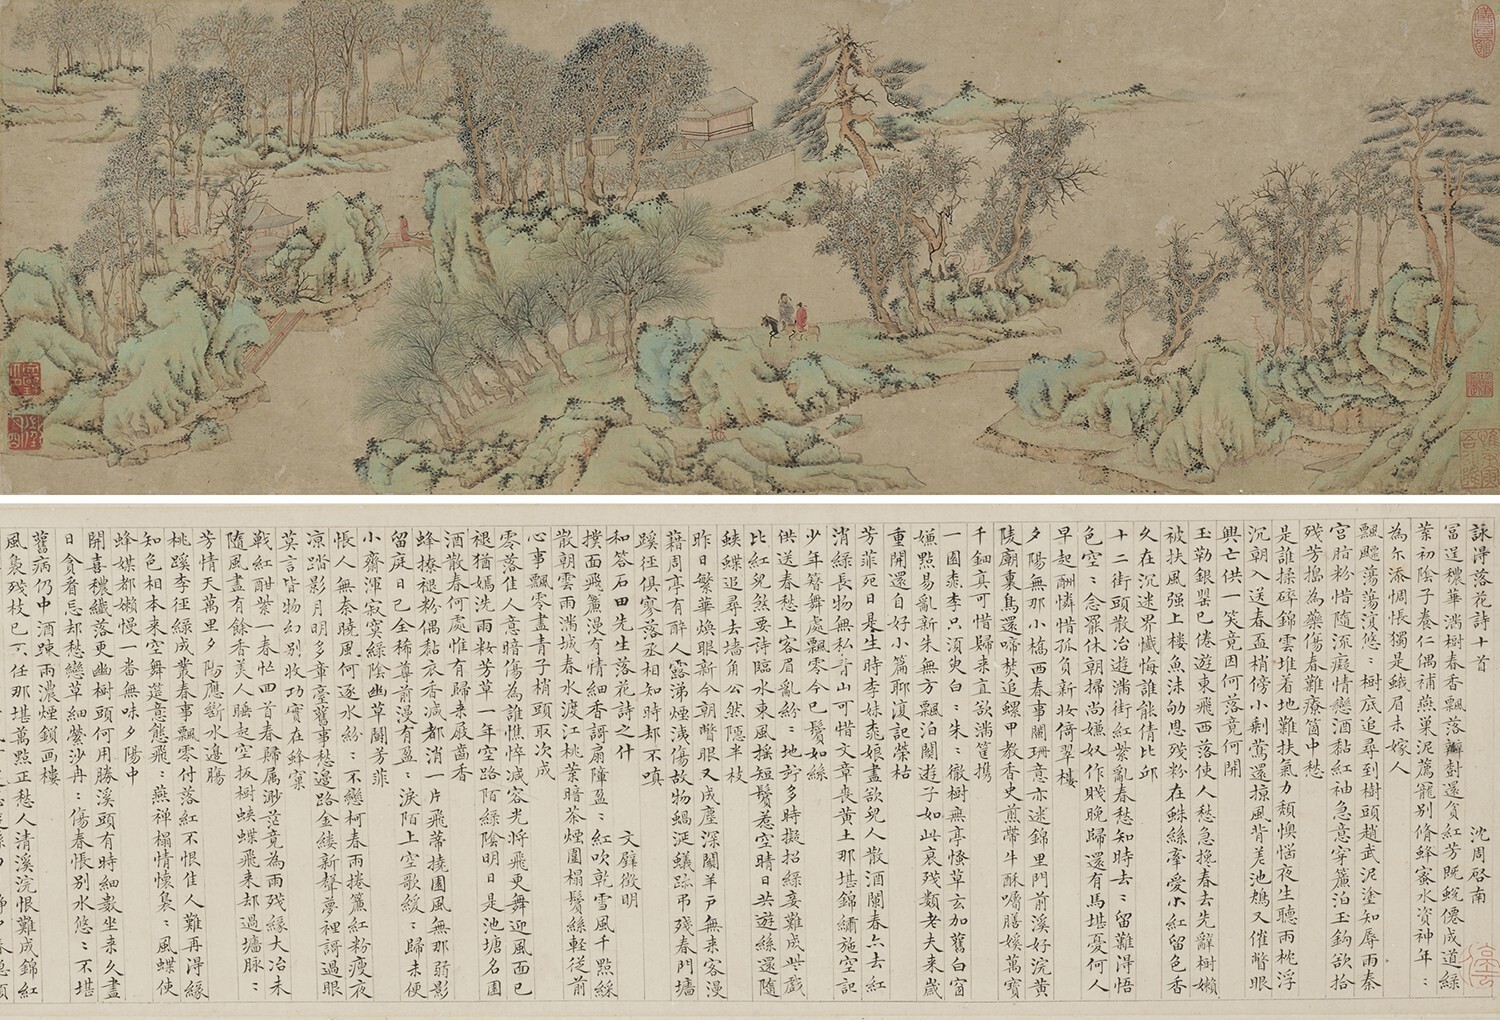 詠得落花詩十首　沈周啓南
富逞穠華滿樹春香飄落瓣對還貧紅芳既蛻僊成道綠
葉初陰子養仁偶補燕巢泥薦寵別脩蜂蜜水資神年〻
為尓添惆悵獨是蛾眉未嫁人
飄飄蕩蕩復悠〻樹底追尋到樹頭趙武泥塗知辱雨秦
宮脂粉惜隨流癡情戀酒黏紅袖急意穿簾泊玉鈎欲拾
殘芳搗為藥傷春難療箇中愁
是誰揉碎錦雲堆着地難扶氣力頹懊惱夜生聽雨枕浮
沉朝入送春盃梢傍小剩鶯還掠風背差池鴂又催瞥眼
興亡供一笑竟因何落竟何開
玉勒銀罌已倦遊東飛西落使人愁急攙春去先辭樹嬾
被扶風强上樓魚沫劬恩殘粉在蛛絲牽愛小紅留色香
久在沉迷界懺悔誰能倩比邱
十二街頭散冶遊滿街紅紫亂春愁知時去〻留難得悟
色空〻念罷休朝掃尚嫌奴作賤晚歸還有馬堪憂何人
早起酬憐惜孤負新妝倚翠樓
夕陽無那小橋西春事闌珊意亦迷錦里門前溪好浣黃
陵廟裏鳥還啼焚追螺甲教香史煎帶牛酥囑膳媄萬寶
千鈿真可惜歸來直欲滿筐攜
一園桃李只須臾白〻朱〻徹樹無亭怪草玄加舊白窗
嫌點易亂新朱無方飄泊關遊子如此衰殘類老夫來歲
重開還自好小篇聊復記榮枯
芳菲死日是生時李妹桃娘盡欲兒人散酒闌春亦去紅
消綠長物無私青山可惜文章喪黃土那堪錦繡施空記
少年簪舞處飄零今已鬢如絲
供送春愁上客眉亂紛〻地竚多時擬招綠妾難成些戲
比紅兒煞要詩臨水東風撩短鬢惹空晴日共遊絲還隨
蛺蝶追尋去墻角公然隱半枝
昨日繁華煥眼新今朝瞥眼又成塵深關羊戶無來客漫
藉周亭有醉人露涕煙洟傷故物蝸涎蟻跡弔殘春門墻
蹊徑俱寥落丞相知時却不嗔
和答石田先生落花詩之什　文璧徵明
撲面飛簾漫有情細香歌扇障盈〻紅吹乾雪風千點綵
散朝雲雨滿城春水渡江桃葉暗茶煙圍榻鬢絲輕從前
心事飄零盡青子梢頭取次成
零落佳人意暗傷為誰憔悴減容光將飛更舞迎風面已
褪猶嫣洗雨妝芳草一年空路陌綠陰明日是池塘名園
酒散春何處惟有歸來屐齒香
蜂撩褪粉偶黏衣香減都消一片飛蒂撓園風無那弱影
留庭日已全稀尊前漫有盈〻淚陌上空歌緩〻歸未便
小齋渾寂寞綠陰幽草鬬芳菲
悵人無奈曉風何逐水紛〻不戀柯春雨捲簾紅粉瘦夜
凉踏影月明多章臺舊事愁邊路金縷新聲夢裡歌過眼
莫言皆物幻別收功實在蜂窠
戰紅酣紫一春忙回首春歸屬渺茫竟為雨殘緣大冶未
隨風盡有餘香美人睡起空扳樹蛺蝶飛來却過墻脉〻
芳情天萬里夕陽應斷水邊腸
桃蹊李徑綠成叢春事飄零付落紅不恨佳人難再得緣
知色相本來空舞筵意態飛〻燕禪榻情懷裊〻風蝶使
蜂媒都嬾慢一番無味夕陽中
開喜穠纖落更幽樹頭何用勝溪頭有時細數坐來久盡
日貪看忘却愁戀草細縈沙冉〻傷春悵別水悠〻不堪
舊病仍中酒踈雨濃煙鎖畫樓
風裊殘枝已不任那堪萬點正愁人清溪浣恨難成錦紅